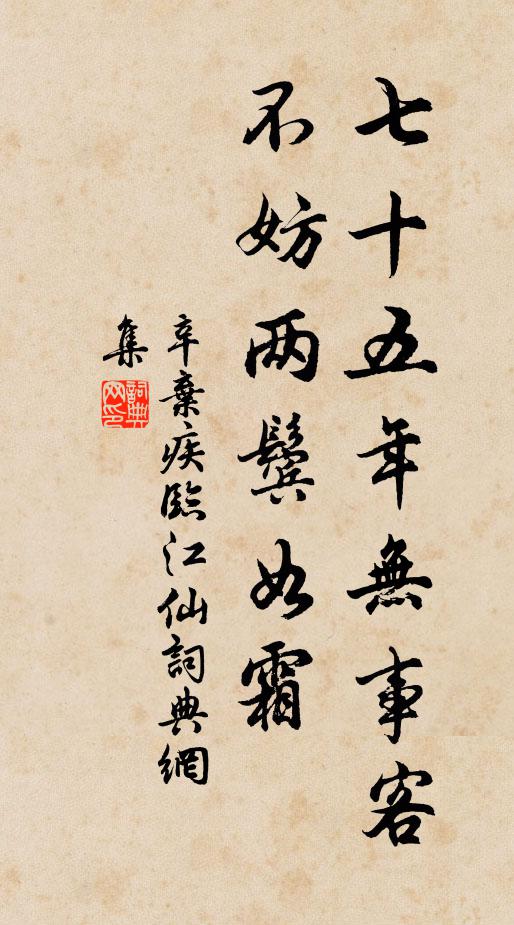 七十五年無事客
不妨两鬓如霜
辛棄疾臨江仙詞典網
集
詞典网印